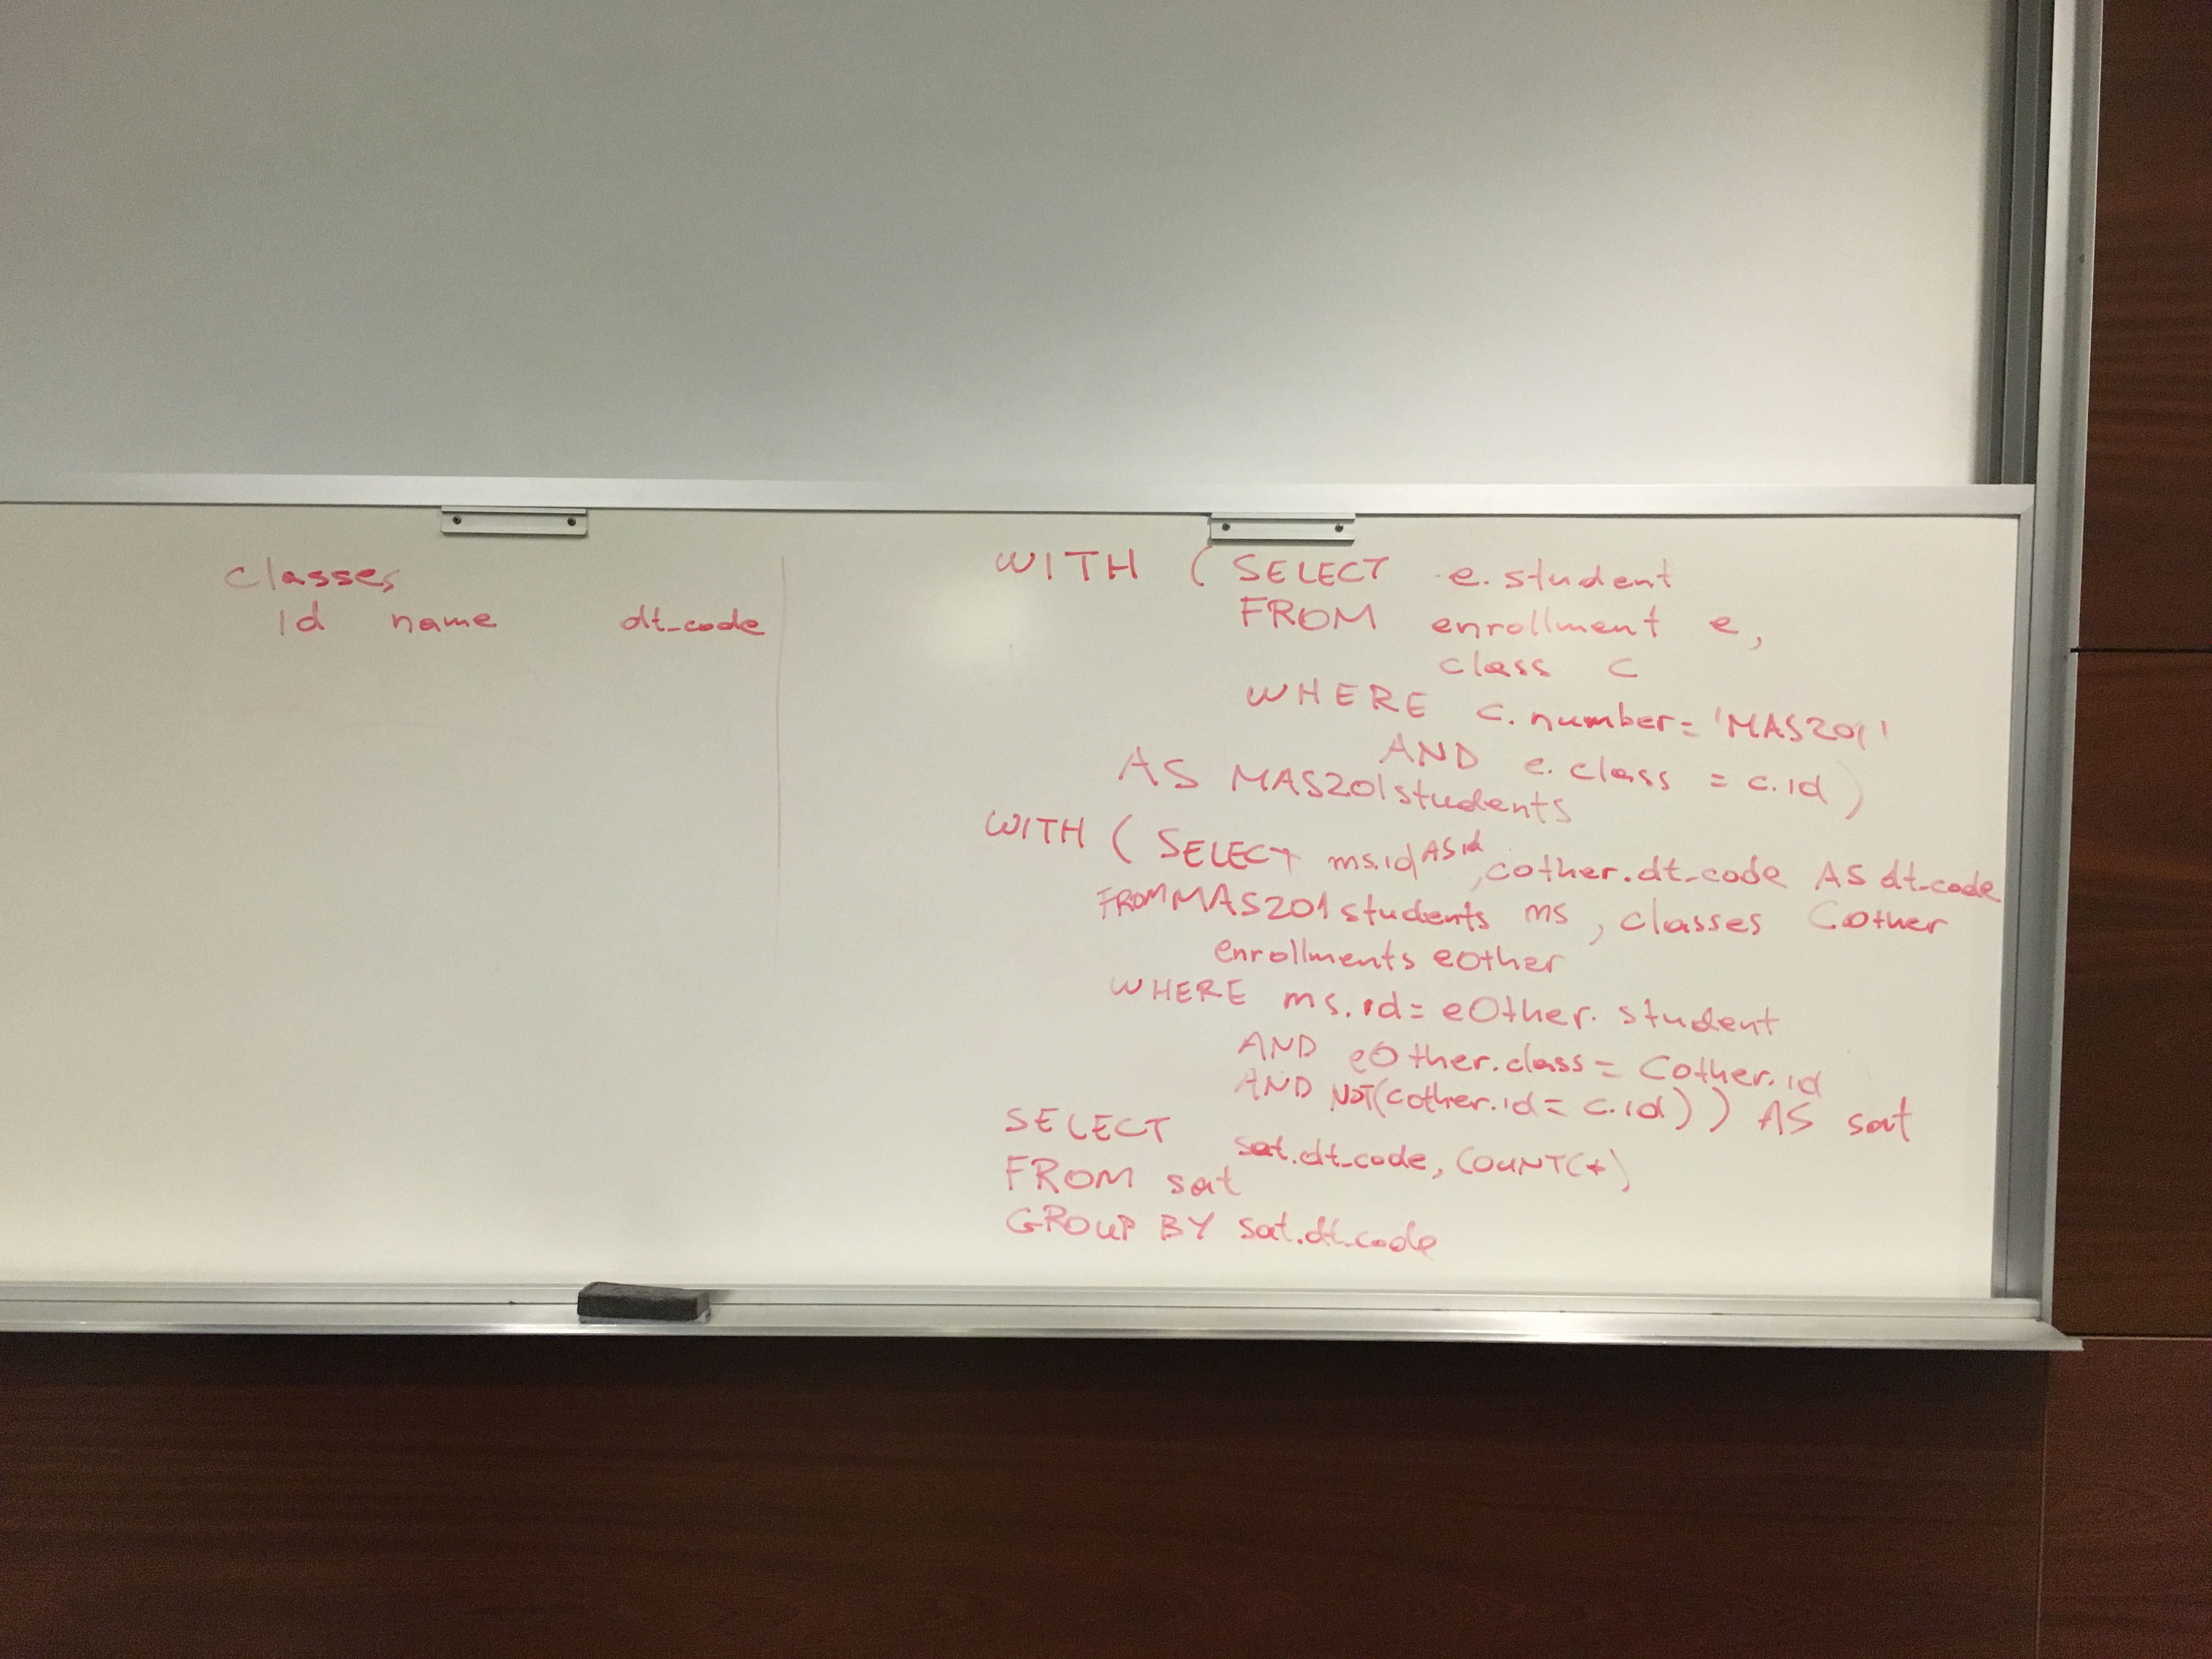 classes
id name dt_code
WITH ( SELECT e.student
FROM enrollment e,
class c
WHERE c.number = 'MAS201'
AND e.class = c.id )
AS MAS201students
WITH ( SELECT ms.id AS id, cother.dt_code AS dt_code
FROM MAS201students ms, classes Cother
enrollments eother
WHERE ms.id = eOther.student
AND eOther.class = Cother.id
AND NOT(cother.id = c.id) ) AS sat
SELECT sat.dt_code, COUNT(*)
FROM sat
GROUP BY sat.dt_code